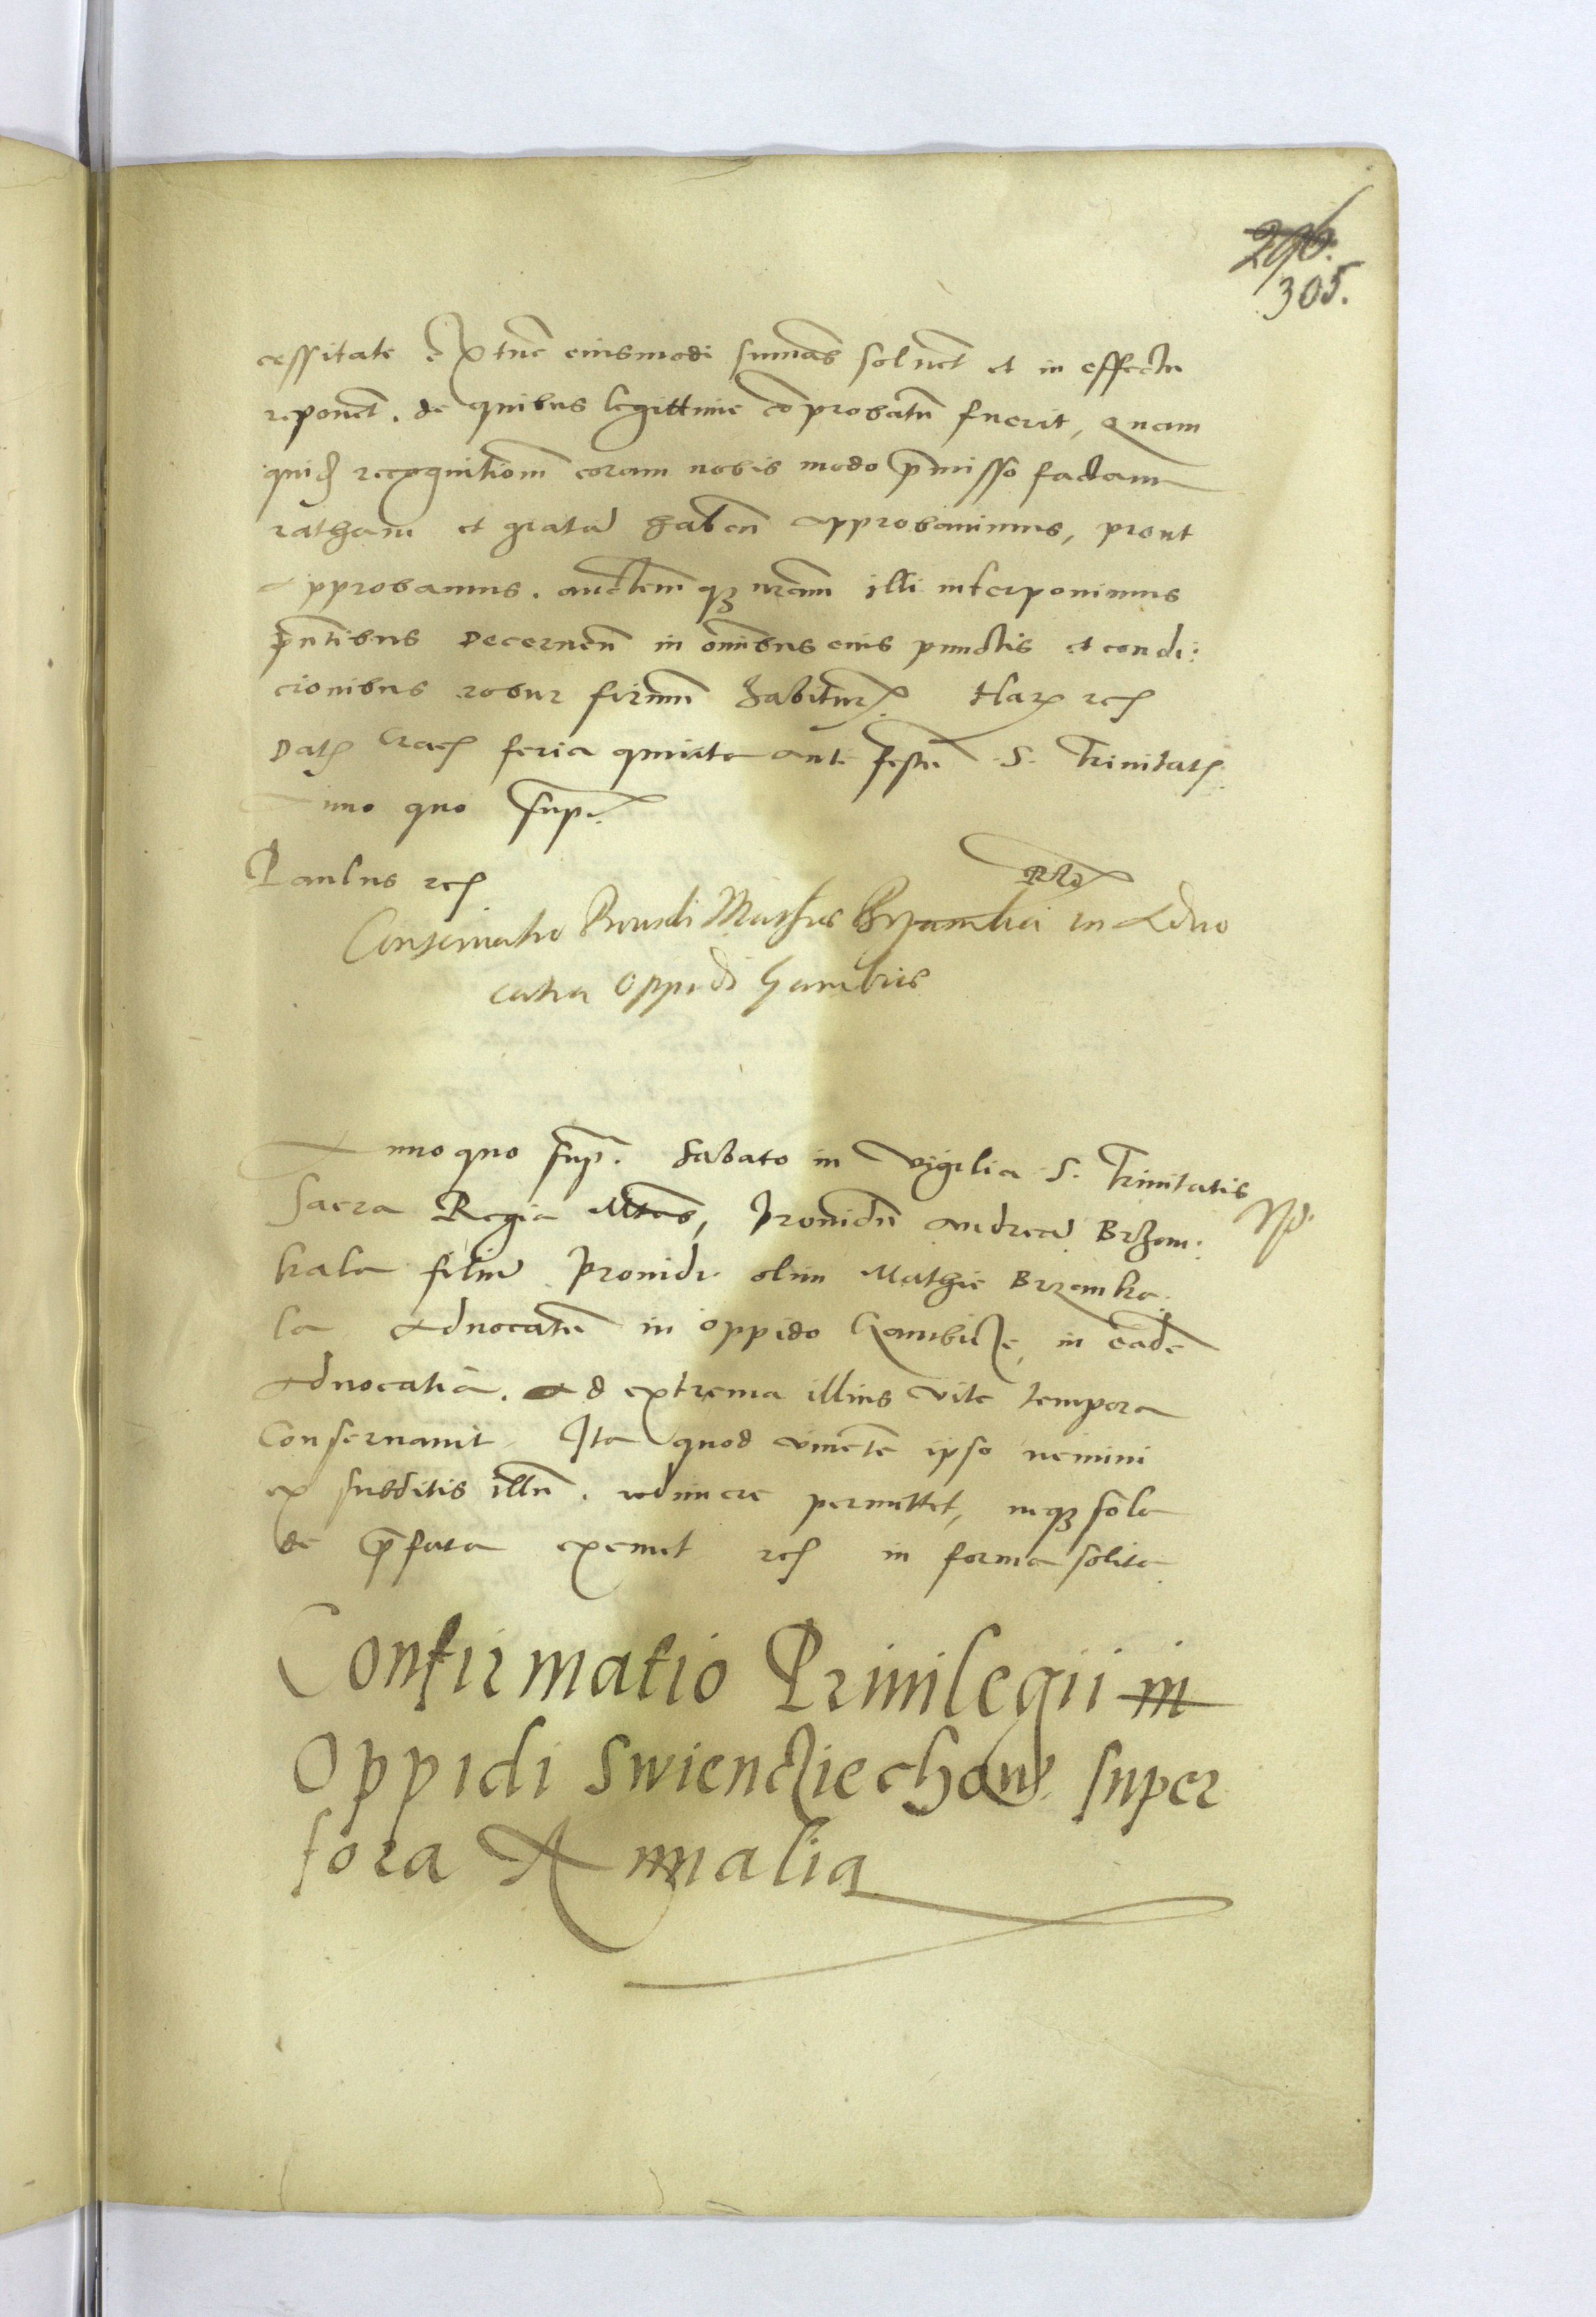 296.
305.
cessitate extunc eiusmodi sumas soluet et in effectu
reponet. de quibus legittime cōprobatū fuerit, quam
quidē recognitionē coram nobis modo p̄misso factam
ratham et gratā haben̄ approbauimus, prout
approbamus. auctem̄ qȝ nr̄am illi interponimus
p̄ntibus Decernen̄ in om̄ibus eius punctis et condi:
cionibus robur firmū habitur. Har rc
Dat Crac feria quinta ante festū S. Trinitat
Anno quo sup.
Paulus rc
Conseruatio Prouidi Mathie in Aduo
catia Oppidi Gambicz
Anno quo sup. Sabato in vigilia S. Trinitatis
Sacra Regia Mtas, Prouidū Andreā Brzem:
kala filiū Prouidi olim Mathie Brzemka:
la Aduocatū in oppido Gambicze, in eadē
Aduocatia. Ad extrema illius vite tempora
Conseruauit Ita quod viuente ipso nemini
ex subditis illū. redimere permittet, neqȝ sola
de p̄fata eximet rc in forma solita
Confirmatio Priuilegii in
Oppidi Swiencziechow super
fora Annalia